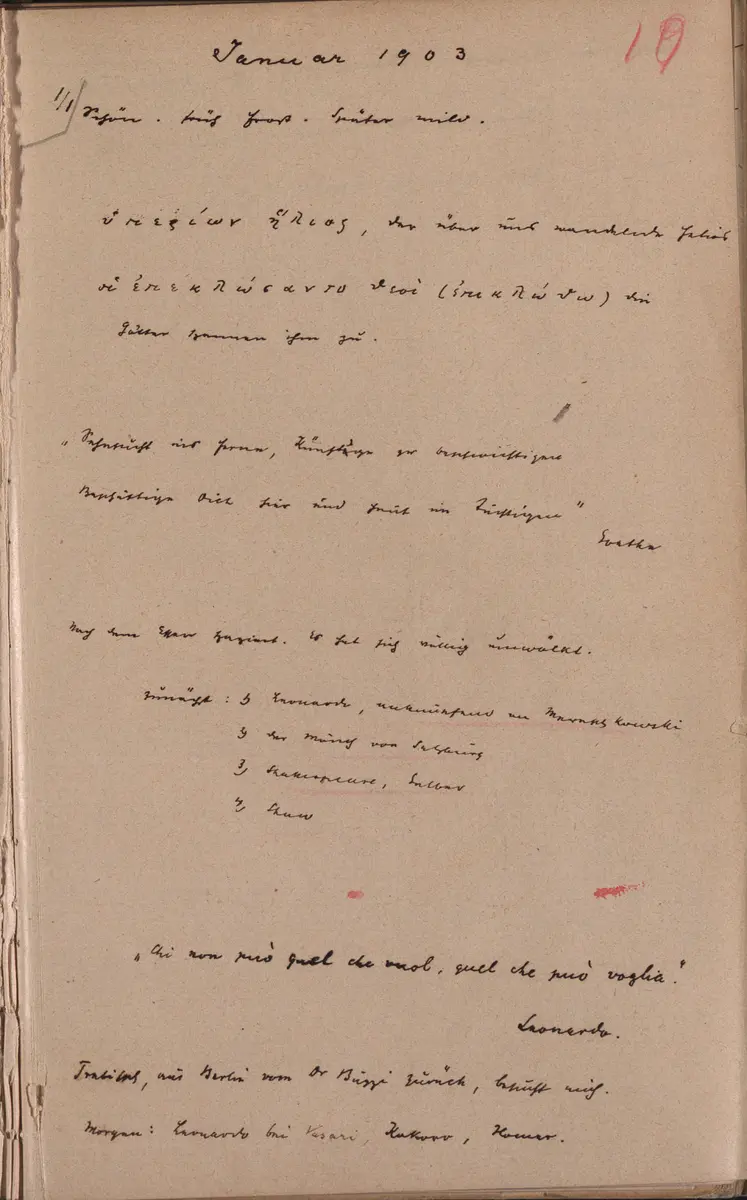 Januar 1903
10
1/1 Schön. früh Frost. Später mild.
ὑπεριων ἥλιος, der über uns wandelnde Helios
οἱ ἐπεκλώσαντο θεοὶ (ἐπικλώθω) die
Götter spannen ihm zu.
„Sehnsucht ins Ferne, Künftige zu beschwichtigen
Beschäftige Dich hier und heut im Tüchtigen"
Goethe
Nach dem Essen spaziert. Es hat sich völlig umwölkt.
Zunächst: 1) Leonardo, anknüpfend an Mereschkowski
2) Der Mönch von Salzburg
3) Shakespeare, Selber
4) Shaw
„Chi non può quel che vuol, quel che può voglia."
Leonardo.
Trebitsch, aus Berlin vom Dr zurück, besucht mich.
Morgen: Leonardo bei Vasari, Kokoro, Homer.